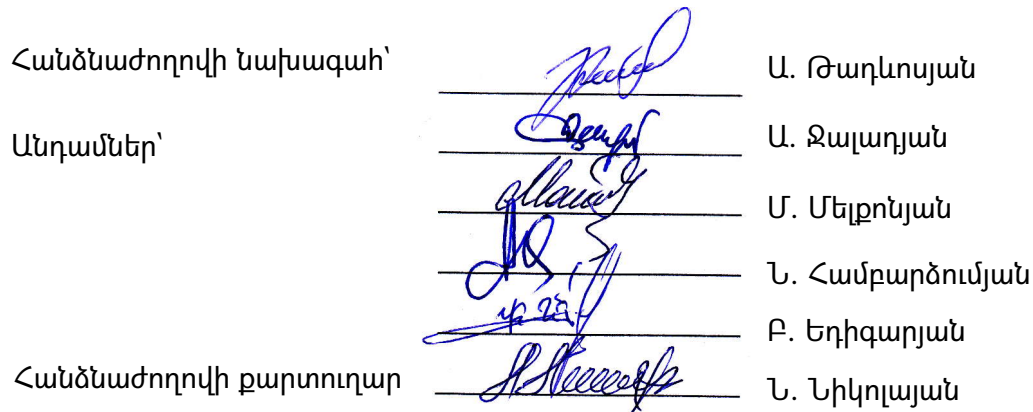 Հանձնաժողովի նախագահ՝ Ա. Թադևոսյան
Անդամներ՝ Ա. Ջալադյան
Մ. Մելքոնյան
Ն. Համբարձումյան
Բ. Եդիգարյան
Հանձնաժողովի քարտուղար Ն. Նիկոլայան